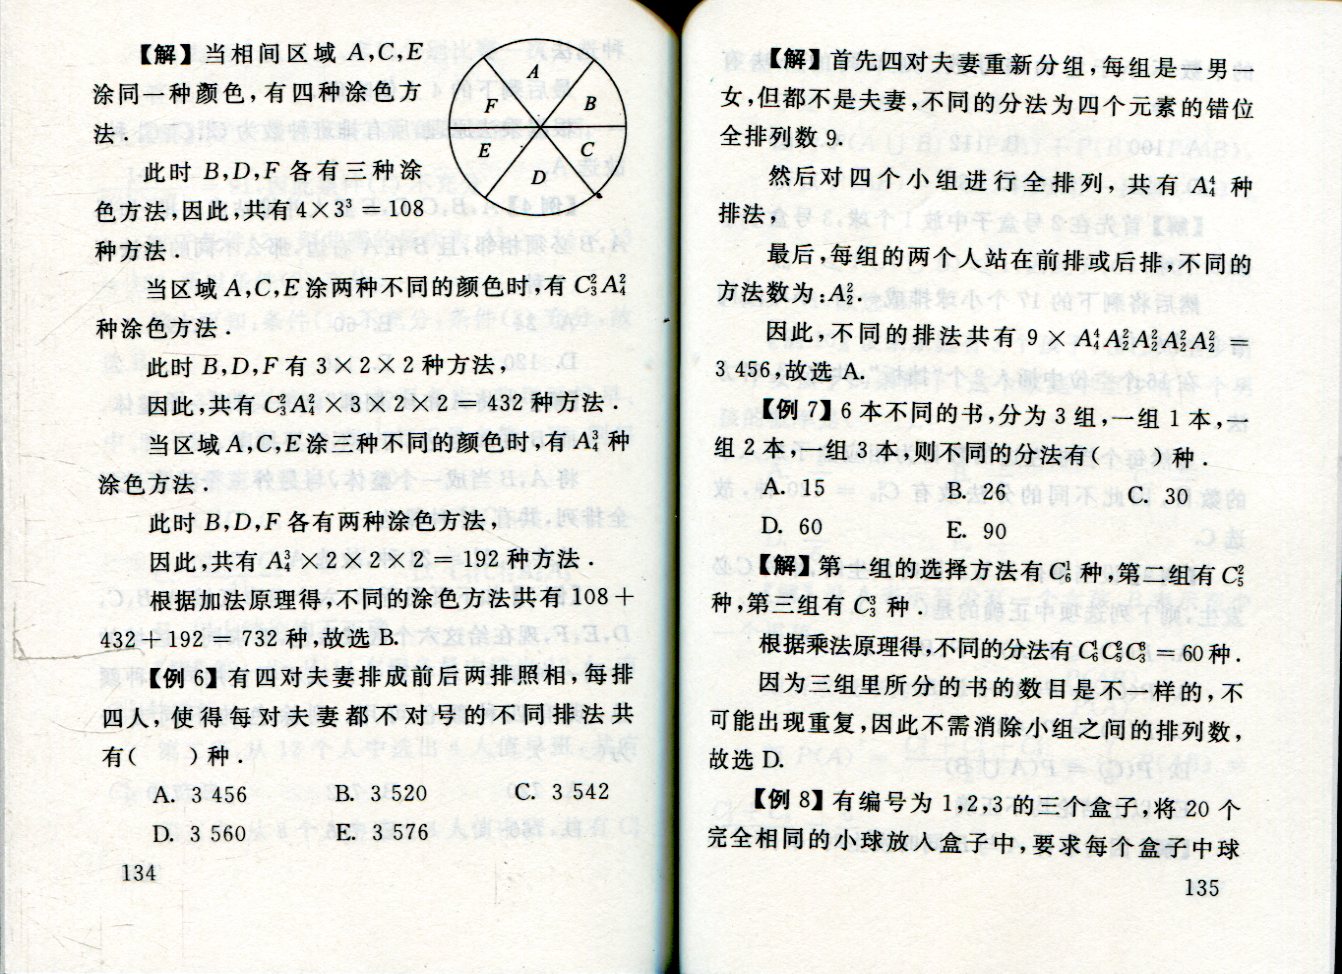 【解】当相间区域 A,C,E
涂同一种颜色,有四种涂色方
法.
此时 B,D,F 各有三种涂
色方法,因此,共有 4×3³=108
种方法.
A
B
C
D
E
F
当区域 A,C,E 涂两种不同的颜色时,有 C₃²A₄²
种涂色方法.
此时 B,D,F 有 3×2×2 种方法,
因此,共有 C₃²A₄²×3×2×2=432 种方法.
当区域 A,C,E 涂三种不同的颜色时,有 A₄³ 种
涂色方法.
此时 B,D,F 各有两种涂色方法,
因此,共有 A₄³×2×2×2=192 种方法.
根据加法原理得,不同的涂色方法共有 108+
432+192=732 种,故选 B.
【例 6】有四对夫妻排成前后两排照相,每排
四人,使得每对夫妻都不对号的不同排法共
有(  )种.
A. 3 456 B. 3 520 C. 3 542
D. 3 560 E. 3 576
134
【解】首先四对夫妻重新分组,每组是一男一
女,但都不是夫妻,不同的分法为四个元素的错位
全排列数 9.
然后对四个小组进行全排列,共有 A₄⁴ 种
排法;
最后,每组的两个人站在前排或后排,不同的
方法数为:A₂².
因此,不同的排法共有 9×A₄⁴A₂²A₂²A₂²A₂²=
3 456,故选 A.
【例 7】6 本不同的书,分为 3 组,一组 1 本,一
组 2 本,一组 3 本,则不同的分法有(  )种.
A. 15 B. 26 C. 30
D. 60 E. 90
【解】第一组的选择方法有 C₆¹ 种,第二组有 C₅²
种,第三组有 C₃³ 种.
根据乘法原理得,不同的分法有 C₆¹C₅²C₃³=60 种.
因为三组里所分的书的数目是不一样的,不
可能出现重复,因此不需消除小组之间的排列数,
故选 D.
【例 8】有编号为 1,2,3 的三个盒子,将 20 个
完全相同的小球放入盒子中,要求每个盒子中球
135